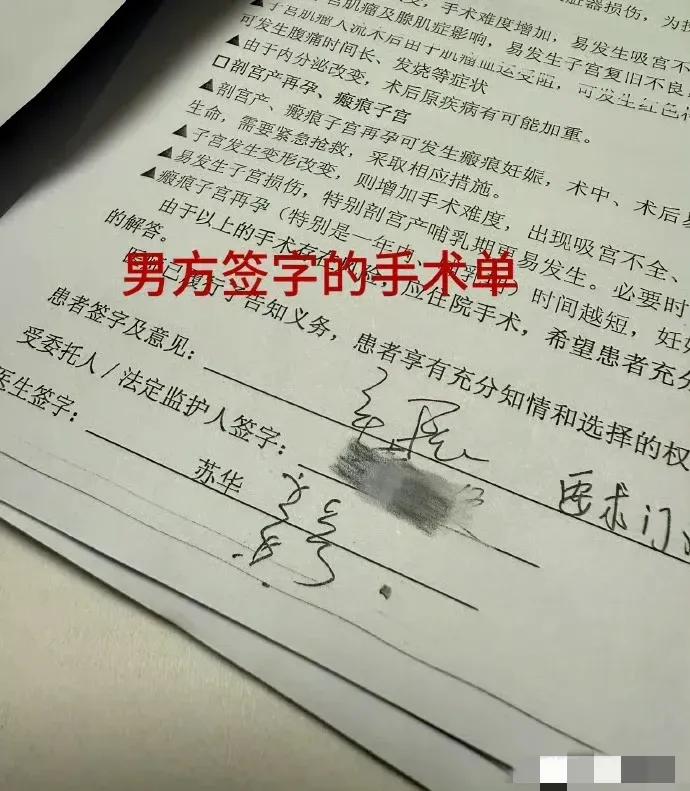 脏器损伤，为
宫肌瘤及腺肌症影响，手术难度增加，易发生吸宫不
▲子宫肌瘤人流术后由于肌瘤血运受阻，可发生红色
可发生腹痛时间长、发烧等症状
▲由于内分泌改变，术后原疾病有可能加重。
□剖宫产再孕、瘢痕子宫
▲剖宫产、瘢痕子宫再孕可发生瘢痕妊娠，术中、术后
生命，需要紧急抢救，采取相应措施。
▲子宫发生变形改变，则增加手术难度，出现吸宫不全、
▲易发生子宫损伤，特别剖宫产哺乳期更易发生。必要时
▲瘢痕子宫再孕（特别是一年内 ）时间越短，妊
由于以上的手术 ，应住院手术，希望患者充分
的解答。
已履行 告知义务，患者享有充分知情和选择的权
男方签字的手术单
患者签字及意见：
要求门
受委托人/法定监护人签字：
医生签字：
苏华